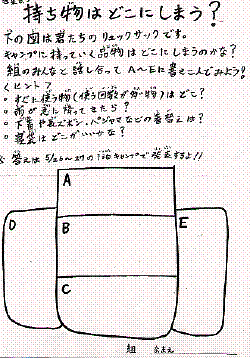 持ち物はどこにしまう?
下の図は君たちのリュックサックです。
キャンプに持っていく品物はどこにしまうのかな?
組のみんなと話し合って A〜Eに書きこんでみよう!
<ヒント?
○すぐに使う物(使う回数が多い物)はどこ?
○雨が急に降ってきたら?
○下着や長ズボン、パジャマなどの着替えは?
○寝袋はどこがいいかな?
答えは 5/26〜27の1泊キャンプで発表するよ!!
A
D
B
E
C
組
なまえ